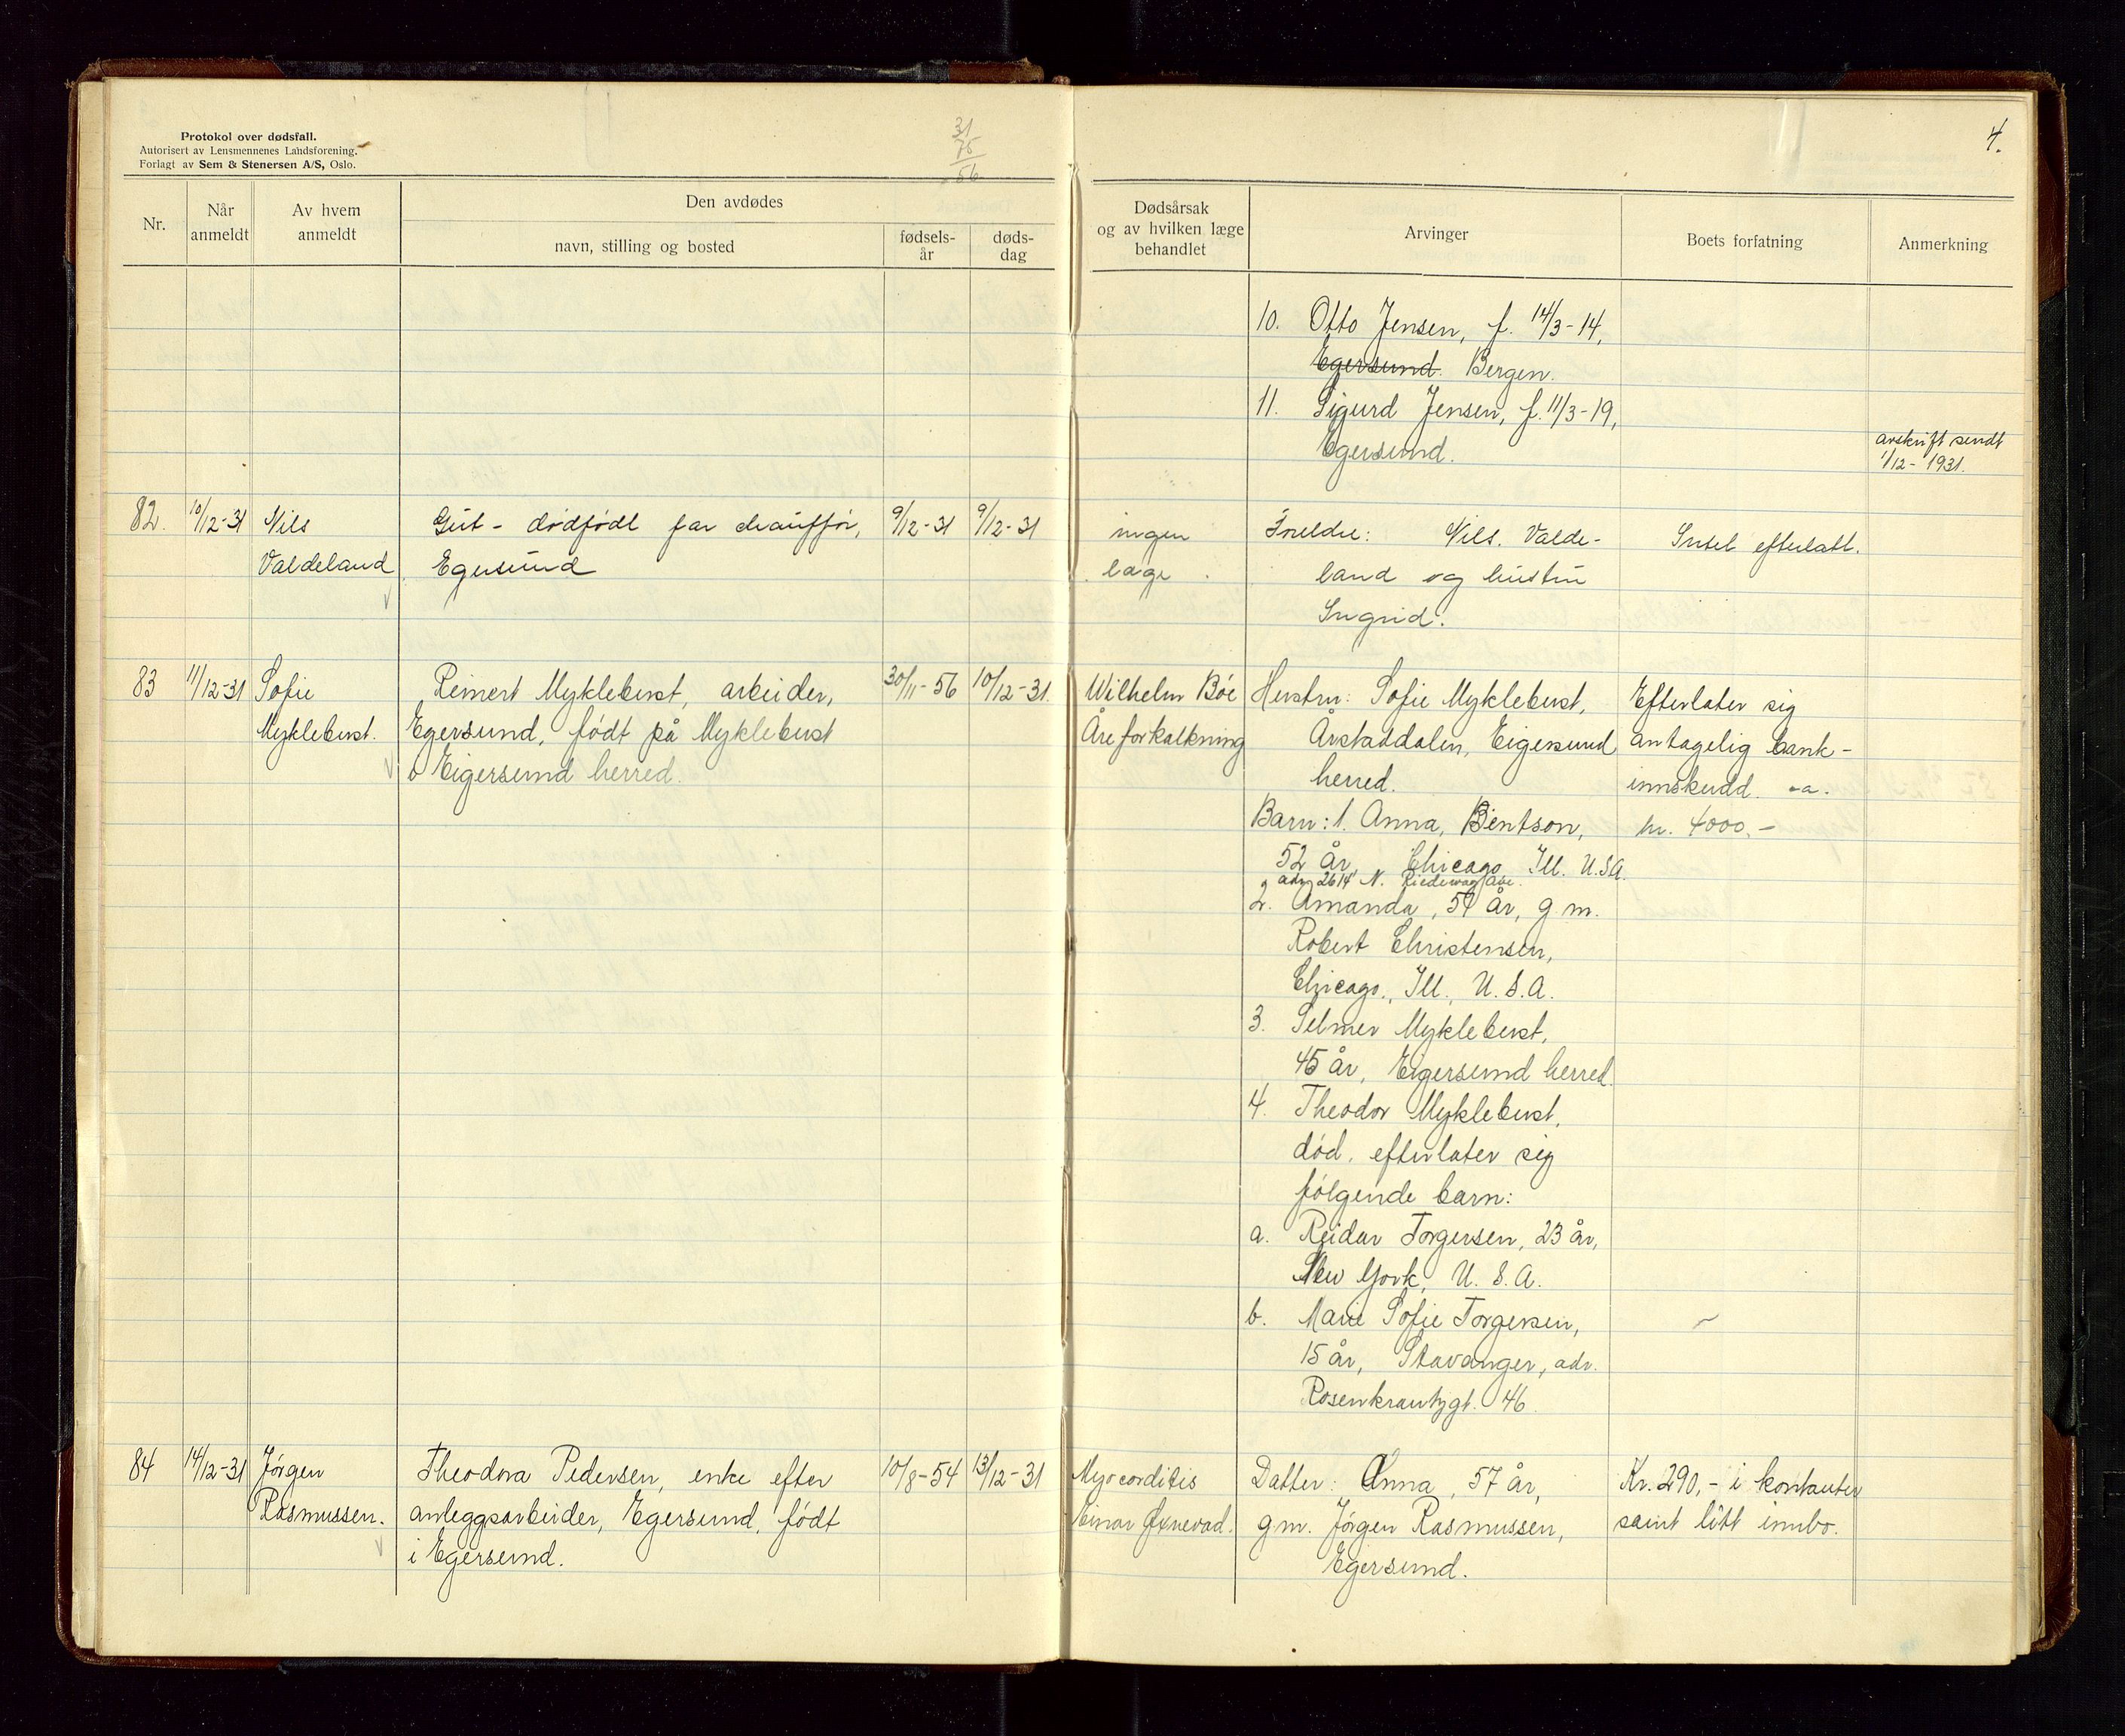 Protokol over dødsfall.
Autorisert av Lensmennenes Landsforening.
Forlagt av Sem & Stenersen A/S, Oslo.
31
75
56
4.
Nr.
Når anmeldt
Av hvem anmeldt
Den avdødes
navn, stilling og bosted
fødsels-år
døds-dag
Dødsårsak og av hvilken læge behandlet
Arvinger
Boets forfatning
Anmerkning
10. Otto Jensen, f. 14/3-14,
Egersund. Bergen.
11. Sigurd Jensen, f. 11/3-19,
Egersund.
avskrift sendt
1/12-1931.
82. 10/12-31 Nils
Valdeland
Gut - dødfødt far chauffør,
Egersund
9/12-31 9/12-31
ingen
læge
Foreldre: Nils Valde-
land og hustru
Ingrid.
Intet efterlatt.
83 11/12-31 Sofie
Myklebust.
Reinert Myklebust, arbeider,
Egersund, født på Myklebust
i Eigersund herred.
30/11-56 10/12-31.
Wilhelm Bøe
Åreforkalkning
Hustru: Sofie Myklebust,
Årstaddalen, Eigersund
herred.
Barn: 1. Anna, Bentson,
52 år, Chicago Ill. U.S.A.
adr. 2614 N. Ave.
2. Amanda, 51 år, g.m.
Robert Christensen,
Chicago, Ill., U.S.A.
3. Selmer Myklebust,
45 år, Eigersund herred.
4. Theodor Myklebust,
død, efterlater sig
følgende barn:
a. Reidar Torgersen, 23 år,
New York, U.S.A.
b. Marie Sofie Torgersen,
15 år, Stavanger, adr.
Rosenkrantzgt. 46
Efterlater sig
antagelig bank-
innskudd ca.
kr. 4000.-
84 14/12-31 Jørgen
Rasmussen.
Theodora Pedersen, enke efter
anleggsarbeider, Egersund, født
i Egersund.
10/8-54 13/12-31
Myocorditis
Einar Øxnevad.
Datter: Anna, 57 år,
g.m. Jørgen Rasmussen,
Egersund.
Kr. 290,- i kontanter
samt litt innbo.